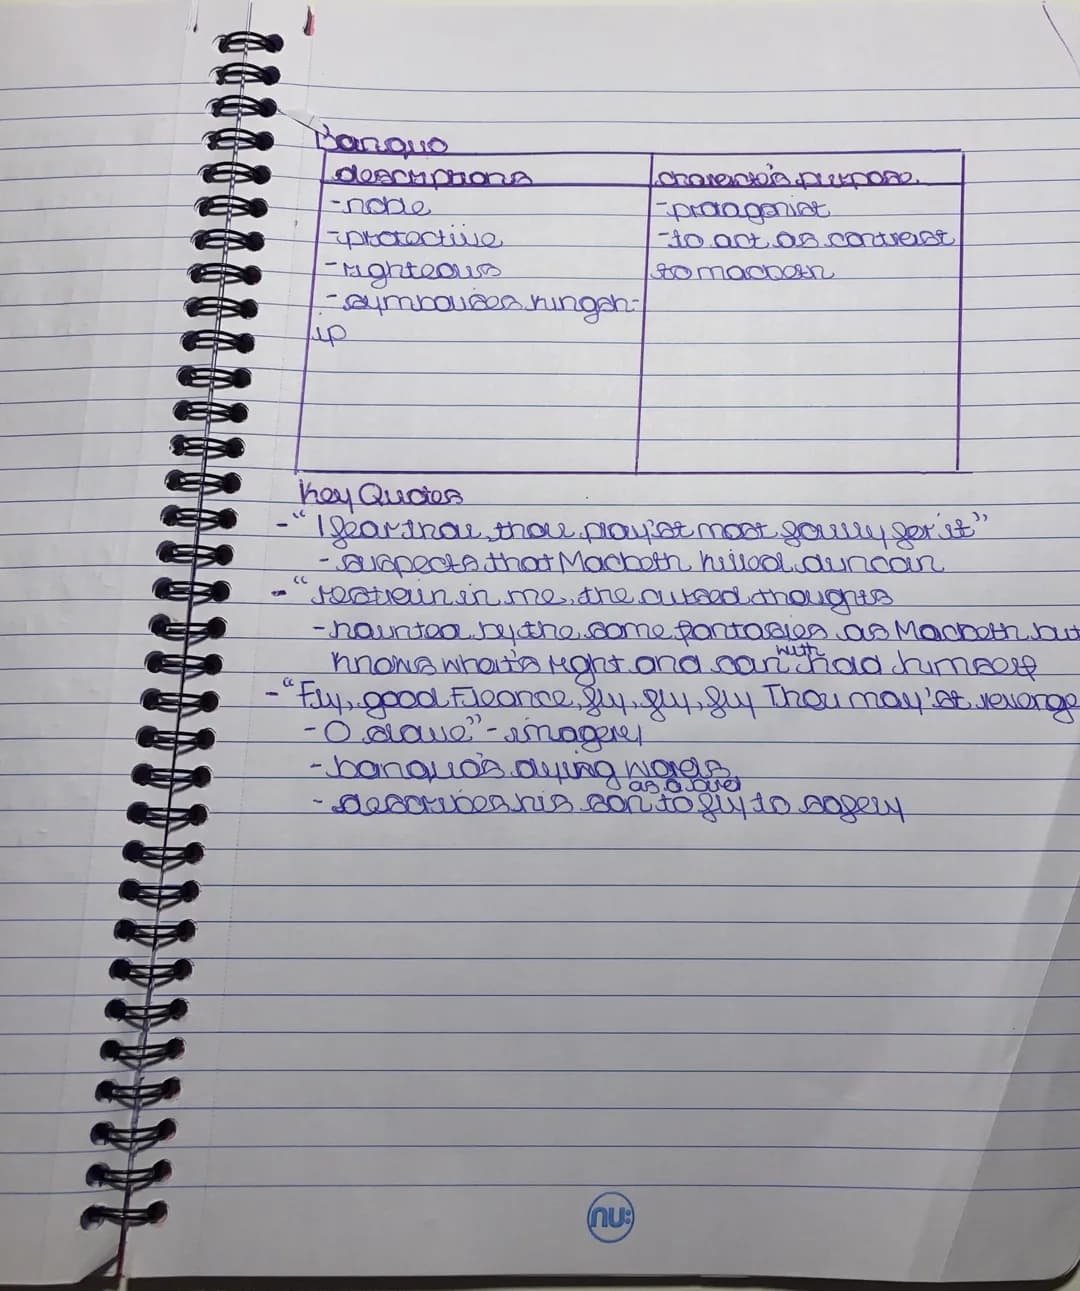 Banquo
descriptions character's purpose.
-noble -protagonist
-protective -to act as contrast
-righteous to macbeth
-symbolises kingsh-
ip
Key Quotes
-"I fear thou, thou play'st most foully for it"
-suspects that Macbeth killed duncan
-"restrain in me, the cursed thoughts
-haunted by the same fantasies as Macbeth but
knows what's right and can with hold himself
-"Fly, good Fleance, fly, fly, fly Thou may'st revenge
-O slave"-imagery
-banquo's dying words
as a bird
-describes his son to fly to safely
nu: